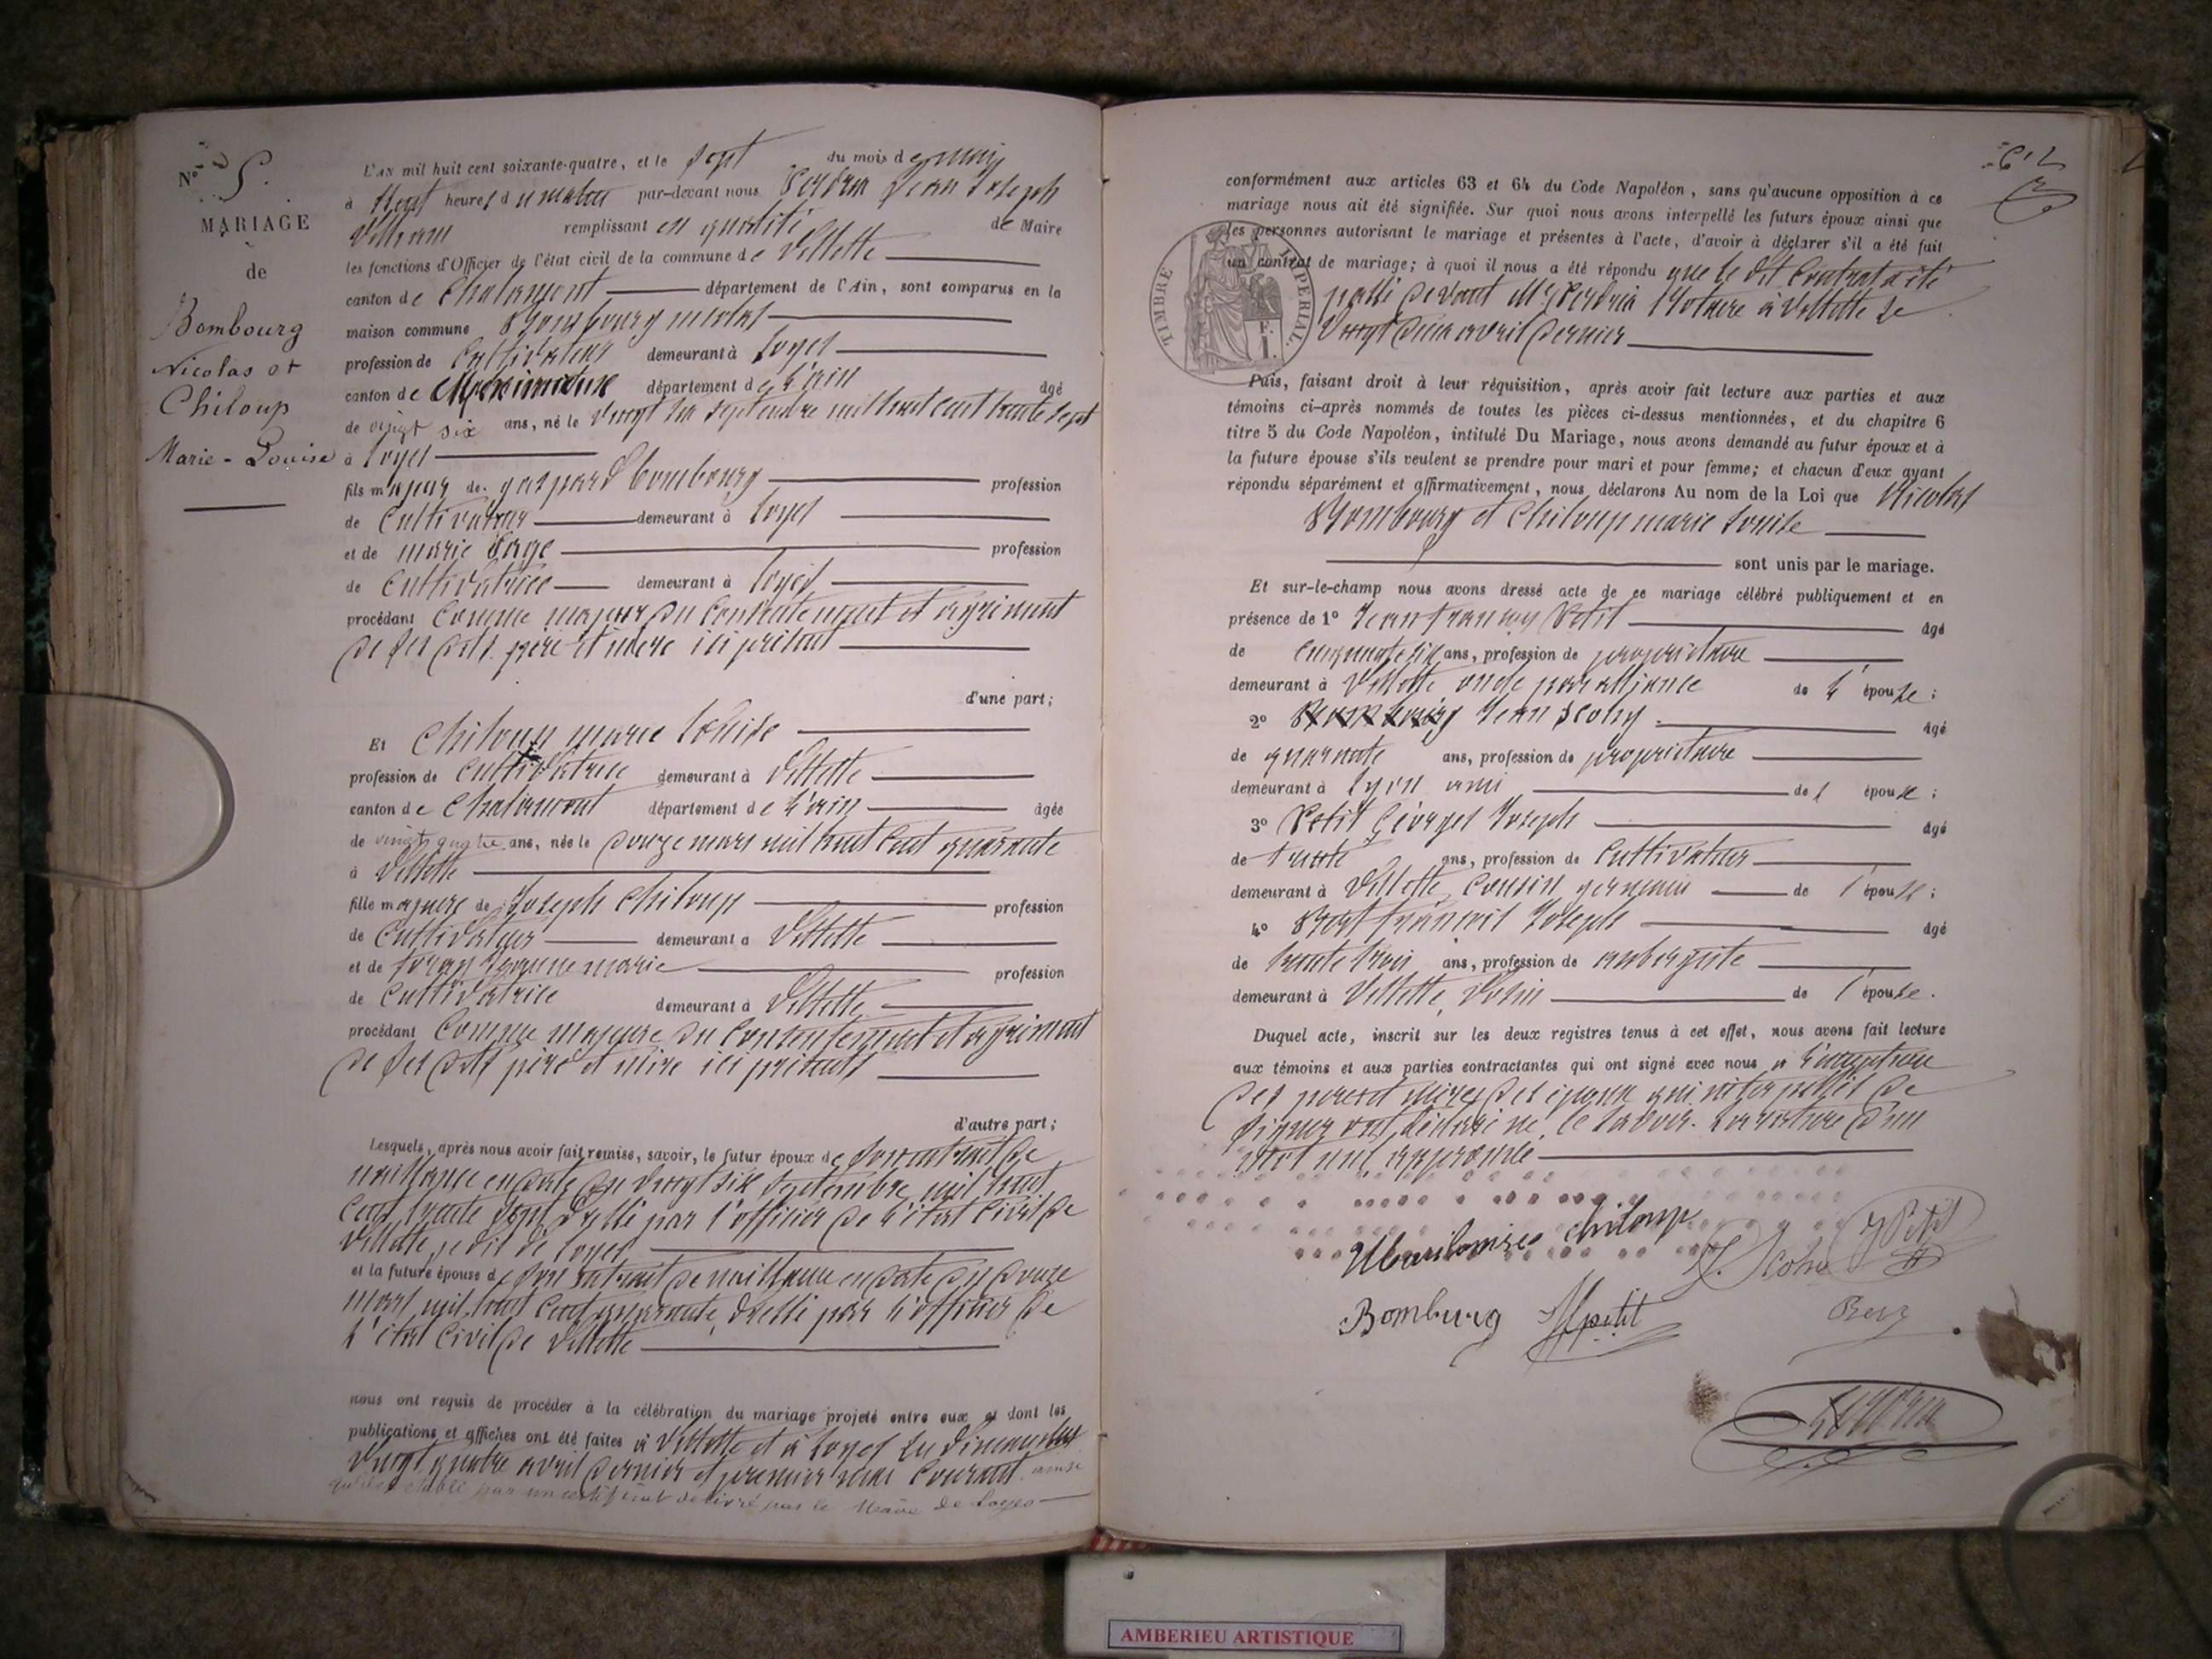 N° 5.
MARIAGE
de
Bombourg
Nicolas et
Chiloup
Marie-Louise
L'AN mil huit cent soixante-quatre, et le sept du mois de mai
à heures du matin par-devant nous Perdrix Jean Joseph
remplissant en qualité de Maire
les fonctions d'Officier de l'état civil de la commune de Villette
canton de Chalamont département de l'Ain, sont comparus en la
maison commune Bombourg nicolas
profession de Cultivateur demeurant à Loyes
canton de Meximieux département de l'ain âgé
de vingt six ans, né le vingt six septembre mil huit cent trente sept
à Loyes
fils majeur de gaspard bombourg profession
de Cultivateur demeurant à Loyes
et de marie profession
de Cultivatrice demeurant à Loyes
procédant Comme majeur du Consentement et agrément
de ses dits père et mère ici présents
d'une part;
Et Chiloup marie Louise
profession de Cultivatrice demeurant à Villette
canton de Chalamont département de l'ain âgée
de vingt quatre ans, née le douze mars mil huit cent quarante
à Villette
fille majeure de Joseph Chiloup profession
de Cultivateur demeurant à Villette
et de Jeanne marie profession
de Cultivatrice demeurant à Villette
procédant Comme majeure du Consentement et agrément
de ses dits père et mère ici présents
d'autre part;
Lesquels, après nous avoir fait remise, savoir, le futur époux de son extrait de
naissance en date du vingt six septembre mil huit
cent trente sept par l'officier de l'état Civil de
Loyes
et la future épouse de son extrait de naissance en date du douze
mars mil huit Cent quarante, par l'officier de
l'état Civil de Villette
nous ont requis de procéder à la célébration du mariage projeté entre eux et dont les
publications et affiches ont été faites à Villette et à Loyes les dimanches
vingt quatre avril dernier et premier mai Courant ainsi
qu'il est établi par un certificat délivré par le Maire de Loyes
conformément aux articles 63 et 64 du Code Napoléon, sans qu'aucune opposition à ce
mariage nous ait été signifiée. Sur quoi nous avons interpellé les futurs époux ainsi que
les personnes autorisant le mariage et présentes à l'acte, d'avoir à déclarer s'il a été fait
un contrat de mariage; à quoi il nous a été répondu que le dit Contrat a été
passé devant Me Perdrix Notaire à Villette le
vingt deux avril dernier
TIMBRE IMPERIAL.
Puis, faisant droit à leur réquisition, après avoir fait lecture aux parties et aux
témoins ci-après nommés de toutes les pièces ci-dessus mentionnées, et du chapitre 6
titre 5 du Code Napoléon, intitulé Du Mariage, nous avons demandé au futur époux et à
la future épouse s'ils veulent se prendre pour mari et pour femme; et chacun d'eux ayant
répondu séparément et affirmativement, nous déclarons Au nom de la Loi que Nicolas
Bombourg et Chiloup marie Louise
sont unis par le mariage.
Et sur-le-champ nous avons dressé acte de ce mariage célébré publiquement et en
présence de 1° Jean françois Petit âgé
de Cinquante six ans, profession de propriétaire
demeurant à Villette oncle par alliance de l'épouse;
2° Jean âgé
de quarante ans, profession de propriétaire
demeurant à Lyon ami de l'épouse;
3° Petit Georges Joseph âgé
de trente ans, profession de Cultivateur
demeurant à Villette Cousin germain de l'épouse;
4° françois Joseph âgé
de trente trois ans, profession de aubergiste
demeurant à Villette, voisin de l'épouse.
Duquel acte, inscrit sur les deux registres tenus à cet effet, nous avons fait lecture
aux témoins et aux parties contractantes qui ont signé avec nous à l'exception
des pères et mères des époux qui interpellés de
signer ont déclaré ne le savoir. La rature d'un
mot nul approuvée
Marilouise chiloup
J Petit
Bomburg
petit
AMBERIEU ARTISTIQUE